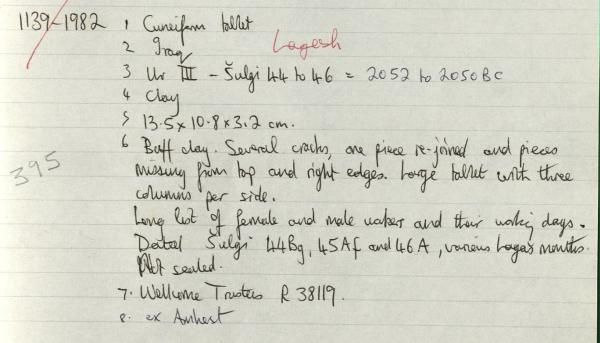 1139-1982 1 Cuneiform tablet
2 Iraq Lagesh
3 Ur III - Šulgi 44 to 46 = 2052 to 2050 BC
4 Clay
5 13.5 x 10.8 x 3.2 cm.
6 Buff clay. Several cracks, one piece re-joined and pieces
missing from top and right edges. Large tablet with three
395
columns per side.
Long list of female and male workers and their working days.
Dated Šulgi 44Bg, 45Af and 46A, various Lagaš months.
Not sealed.
7. Wellcome Trustees R 38119.
8. ex Amhest